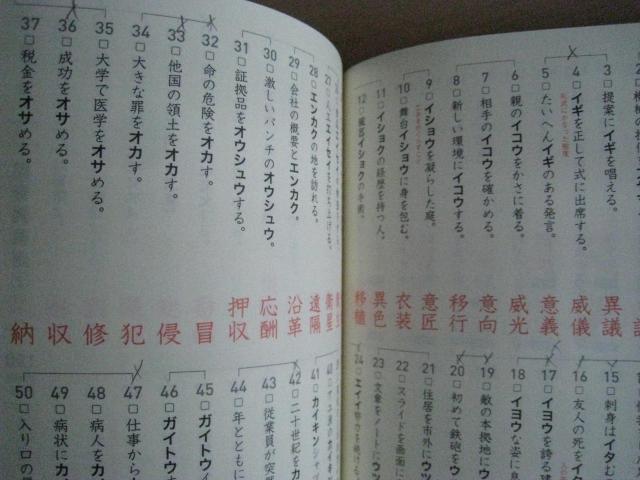 3□提案にイギを唱える。
異議
4□イギを正して式に出席する。
威儀
5□たいへんイギのある発言。
意義
6□親のイコウをかさに着る。
威光
7□相手のイコウを確かめる。
意向
8□新しい環境にイコウする。
移行
9□イショウを凝らした庭。
意匠
10□舞台イショウに身を包む。
衣装
11□イショクの経歴を持つ人。
異色
12□臓器イショクの手術。
移植
15□刺身はイタむ
16□友人の死をイタ
17□イヨウを誇る建
18□イヨウな姿に息
19□敵の本拠地に
20□初めて鉄砲をウ
21□住居を市外にウツ
22□スライドを画面に
23□文章をノートにウツ
24□エイ
衛星
28□エンカクの地を訪れる。
遠隔
29□会社の概要とエンカク。
沿革
30□激しいパンチのオウシュウ。
応酬
31□証拠品をオウシュウする。
押収
32□命の危険をオカす。
冒
33□他国の領土をオカす。
侵
34□大きな罪をオカす。
犯
35□大学で医学をオサめる。
修
36□成功をオサめる。
収
37□税金をオサめる。
納
41□カイキンシャツ
42□二十世紀をカ
43□従業員が突然
44□年とともに
45□ガイトウ
46□ガイトウ
47□仕事から
48□病人をカ
49□病状にカ
50□入り口の